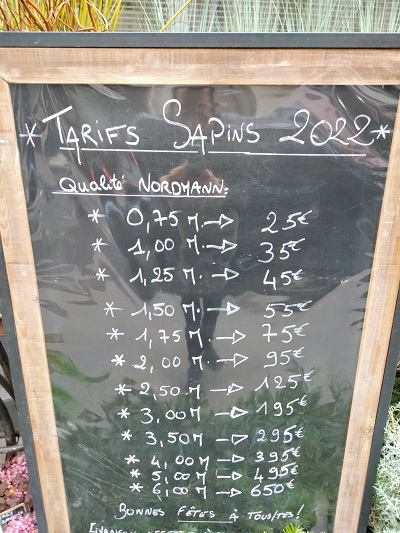 * TARIFS SAPINS 2022 *
Qualité NORDMANN:
* 0,75 M. → 25€
* 1,00 M. → 35€
* 1,25 M. → 45€
* 1,50 M. → 55€
* 1,75 M. → 75€
* 2,00 M. → 95€
* 2,50 M → 125€
* 3,00 M → 195€
* 3,50 M → 295€
* 4,00 M → 395€
* 5,00 M → 495€
* 6,00 M → 650€
BONNES FÊTES À TOUS/TES!